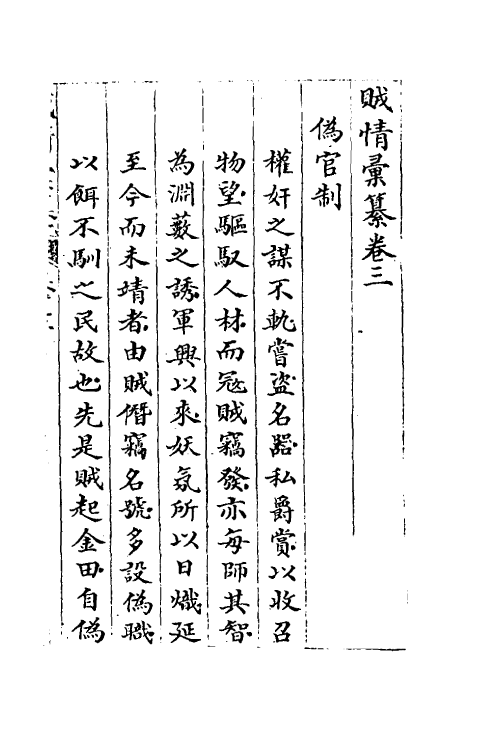 賊情彙纂卷三
偽官制
權奸之謀不軌嘗盜名器私爵賞以收召
物望驅馭人材而冦賊竊發亦每師其智
為淵藪之誘軍興以來妖氛所以日熾延
至今而未靖者由賊僭竊名號多設偽職
以餌不馴之民故也先是賊起金田自偽